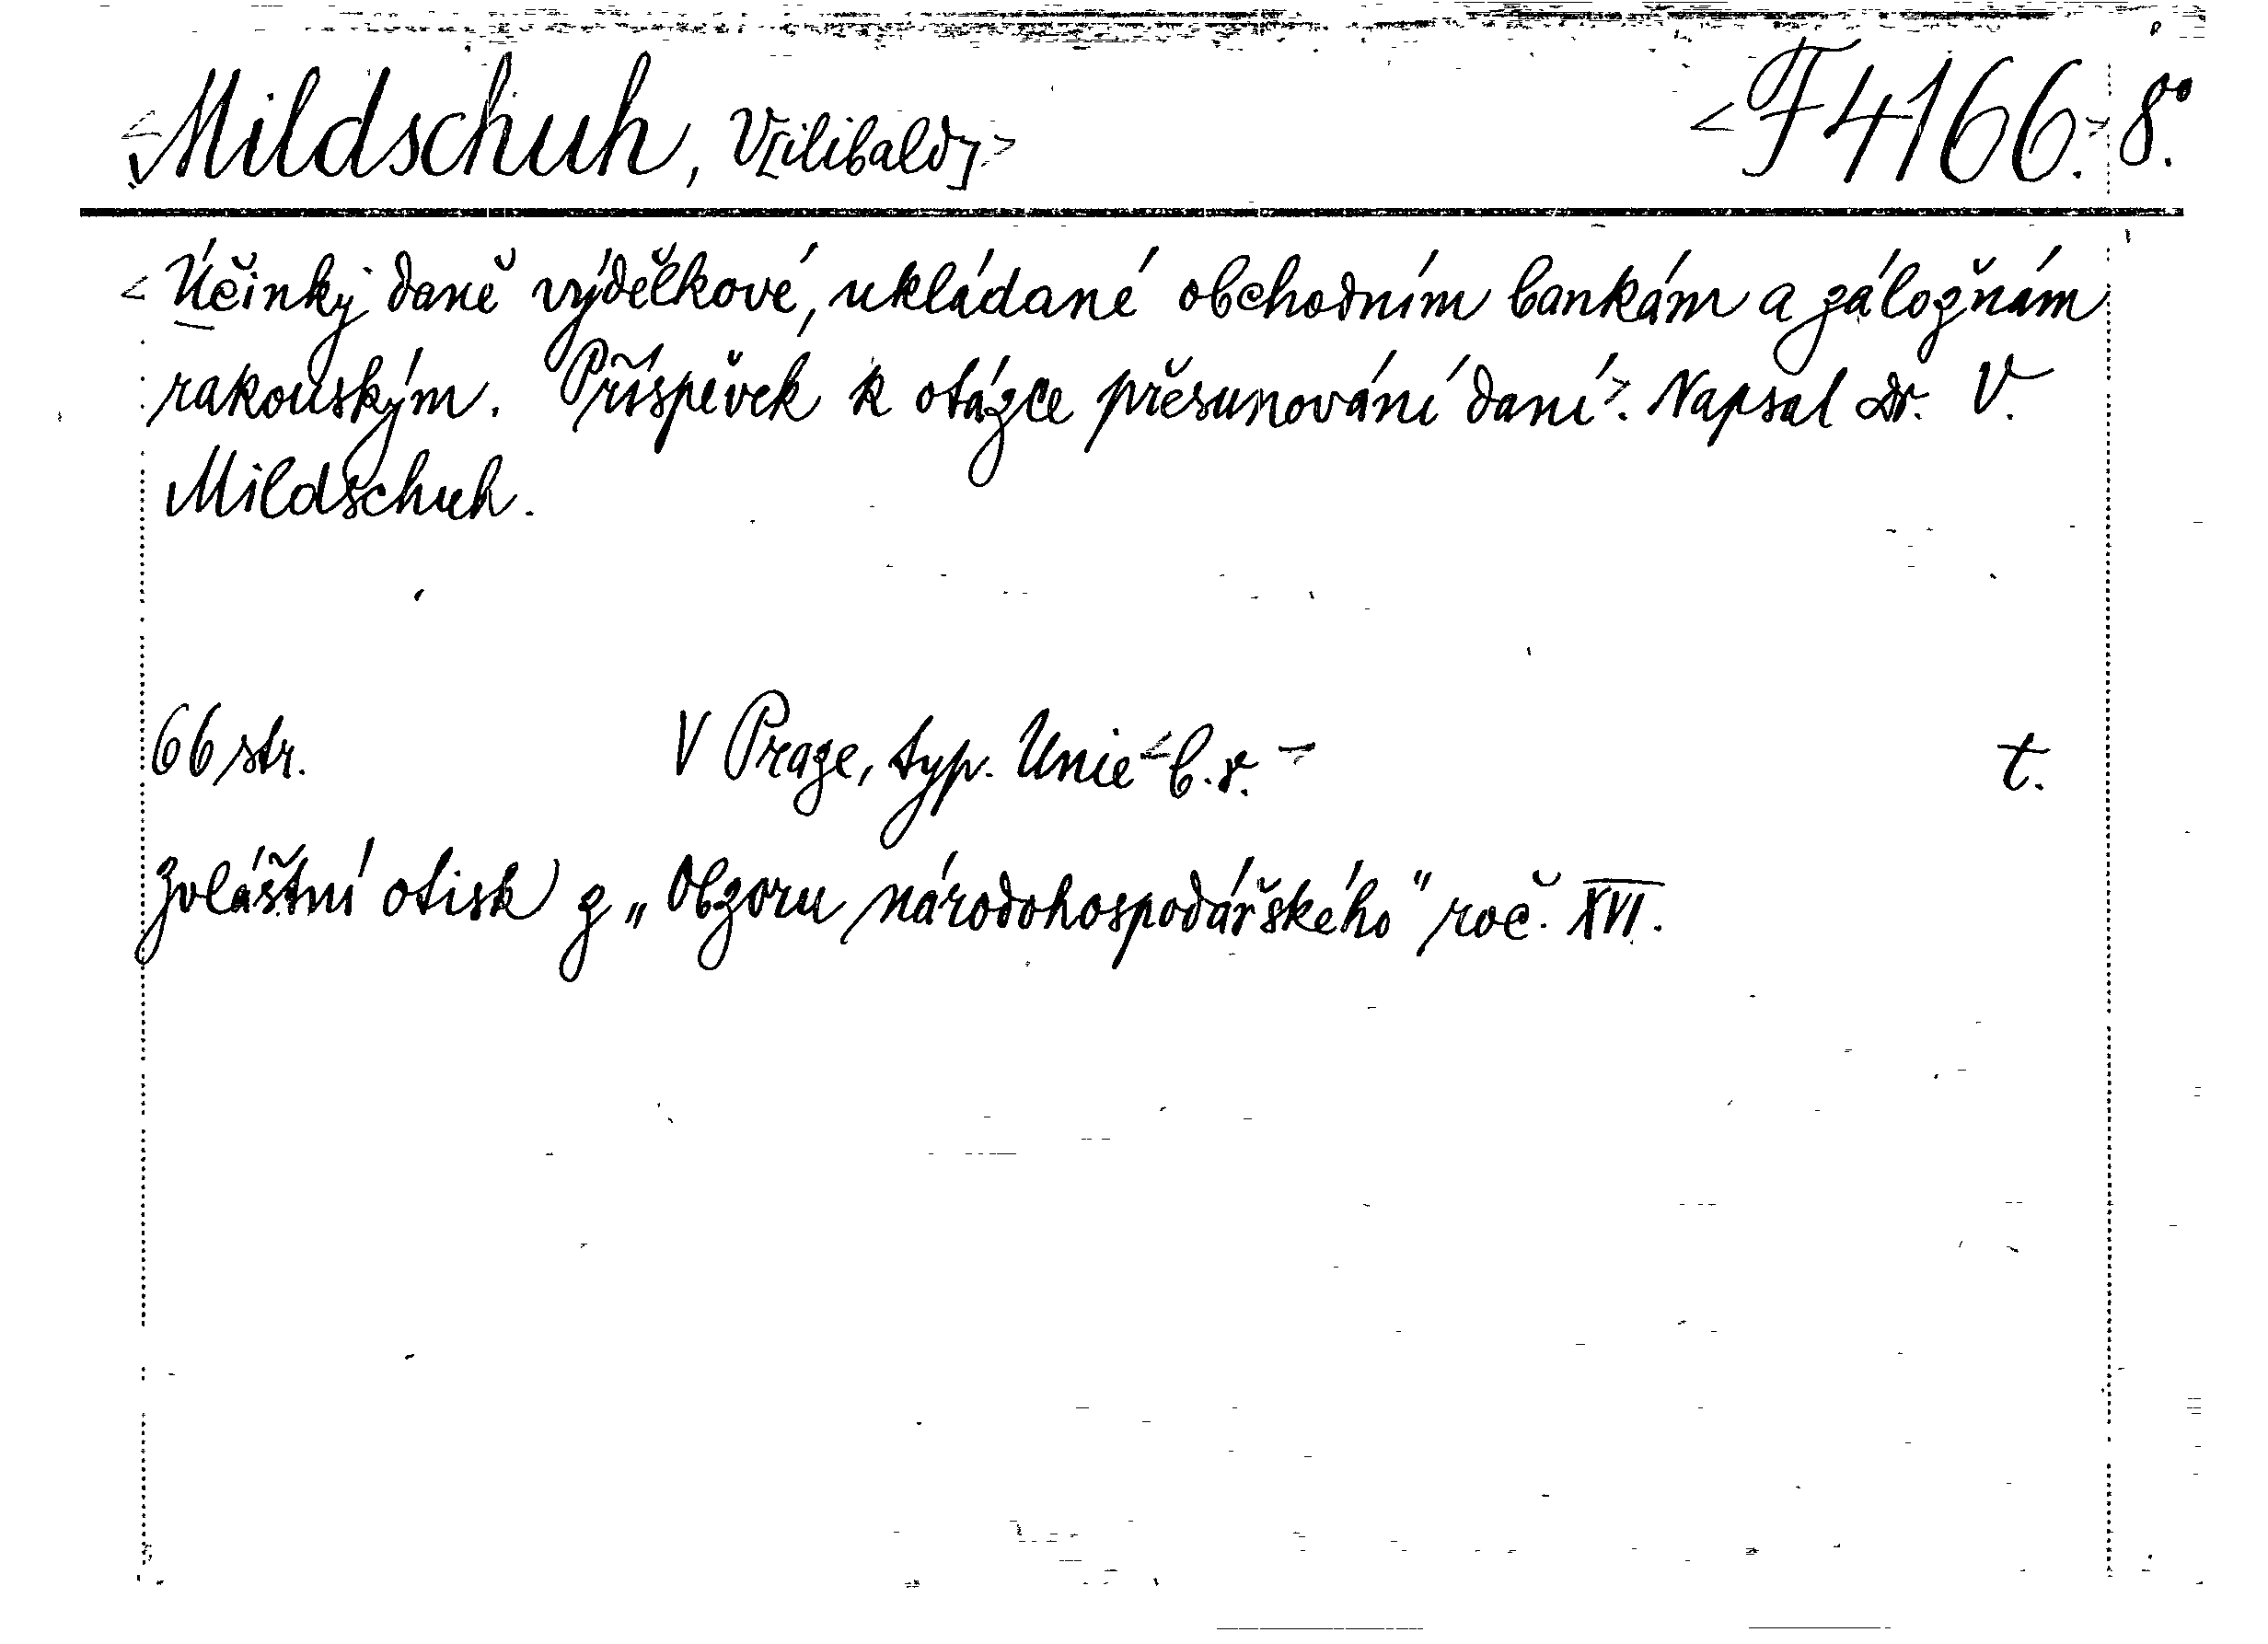 <Mildschuh, V[ilibald]> <F 4166.> 8°.
<Účinky daně výdělkové, ukládané obchodním bankám a záložnám
rakouským. Příspěvek k otázce přesunování daní>. Napsal Dr. V.
Mildschuh.
66 str. V Praze, typ. Unie <b. r.> t.
Zvláštní otisk z „Obzoru národohospodářského" roč. XVI.